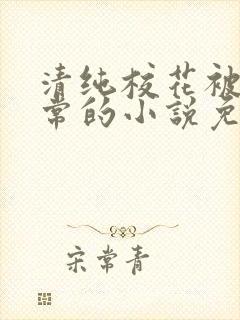 清纯校花被
常的小説免
宋常青